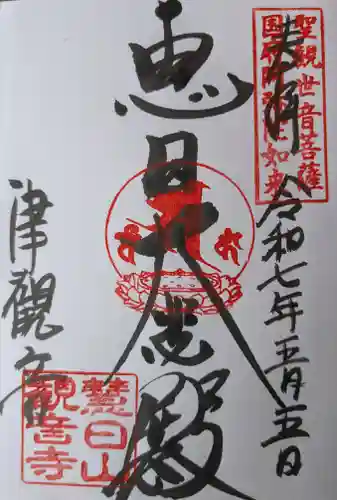 奉拝
聖観世音菩薩
国府阿弥陀如来
令和七年五月五日
恵日大光殿
津観音
慧日山
観音寺